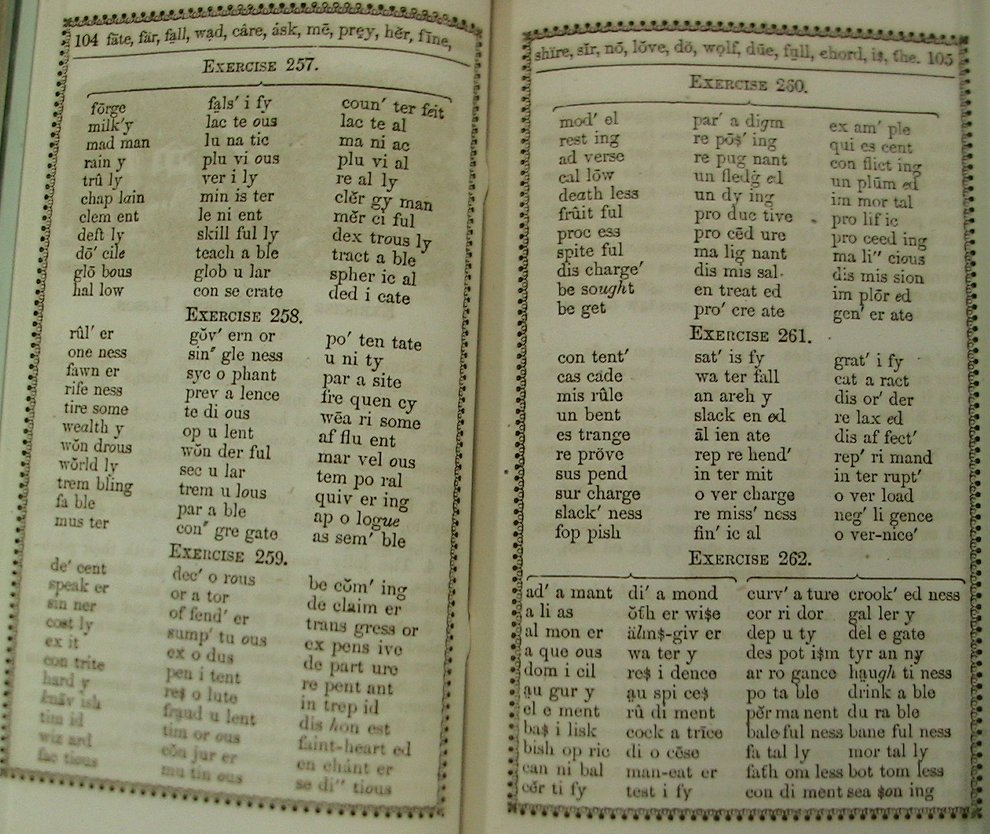 104 fāte, fär, fa̤ll, wad, câre, ȧsk, mē, prey, hẽr, fīne,
EXERCISE 257.
fōrge fa̤ls′ i fy coun′ ter feit
milk′y lac te ous lac te al
mad man lu na tic ma ni ac
rain y plu vi ous plu vi al
trû ly ver i ly re al ly
chap lain min is ter clẽr gy man
clem ent le ni ent mẽr ci ful
deft ly skill ful ly dex trous ly
dŏ′ cile teach a ble tract a ble
glō bous glob u lar spher ic al
hal low con se crate ded i cate
EXERCISE 258.
rûl′ er gŏv′ ern or po′ ten tate
one ness sin″ gle ness u ni ty
fawn er syc o phant par a site
rife ness prev a lence fre quen cy
tire some te di ous wēa ri some
wealth y op u lent af flu ent
wŏn drous wŏn der ful mar vel ous
wŏrld ly sec u lar tem po ral
trem bling trem u lous quiv er ing
fa ble par a ble ap o logue
mus ter con″ gre gate as sem′ ble
EXERCISE 259.
de′ cent dec′ o rous be cŏm′ ing
speak er or a tor de claim er
sin ner of fend′ er trans gress or
cost ly sump′ tu ous ex pens ive
ex it ex o dus de part ure
con trite pen i tent re pent ant
hard y res̩ o lute in trep id
knāv ish fraud u lent dis hon est
tim id tim or ous faint-heart ed
wiz ard cŏn jur er en chánt er
fac tious mu tin ous se di″ tious
shīre, sīr, nō, lŏve, dö, wolf, dūe, full, chord, is̩, the. 105
EXERCISE 260.
mod′ el par′ a digm ex am′ ple
rest ing re pōs̩′ ing qui es cent
ad verse re pug nant con flict ing
cal lōw un fledġ ed un plūm ed
death less un dy ing im mor tal
frûit ful pro duc tive pro lif ic
proc ess pro cēd ure pro ceed ing
spite ful ma lig nant ma li″ cious
dis charge′ dis mis sal dis mis sion
be sought en treat ed im plōr ed
be get pro′ cre ate gen′ er ate
EXERCISE 261.
con tent′ sat′ is fy grat′ i fy
cas cade wa ter fall cat a ract
mis rûle an arch y dis or′ der
un bent slack en ed re lax ed
es trange āl ien ate dis af fect′
re pröve rep re hend′ rep′ ri mand
sus pend in ter mit in ter rupt′
sur charge o ver charge o ver load
slack′ ness re miss′ ness neg′ li gence
fop pish fin′ ic al o ver-nice′
EXERCISE 262.
ad′ a mant di′ a mond curv′ a ture crook′ ed ness
a li as ŏth er wis̩e cor ri dor gal ler y
al mon er älms̩-giv er dep u ty del e gate
a que ous wa ter y des pot is̩m tyr an ny
dom i cil res̩ i dence ar ro gance ha̤ugh ti ness
a̤u gur y a̤u spi ces̩ po ta ble drink a ble
el e ment rû di ment pẽr ma nent du ra ble
bas̩ i lisk cock a trīce bale ful ness bane ful ness
bish op ric di o cēse fa tal ly mor tal ly
can ni bal man-eat er fath om less bot tom less
cẽr ti fy test i fy con di ment sea s̩on ing